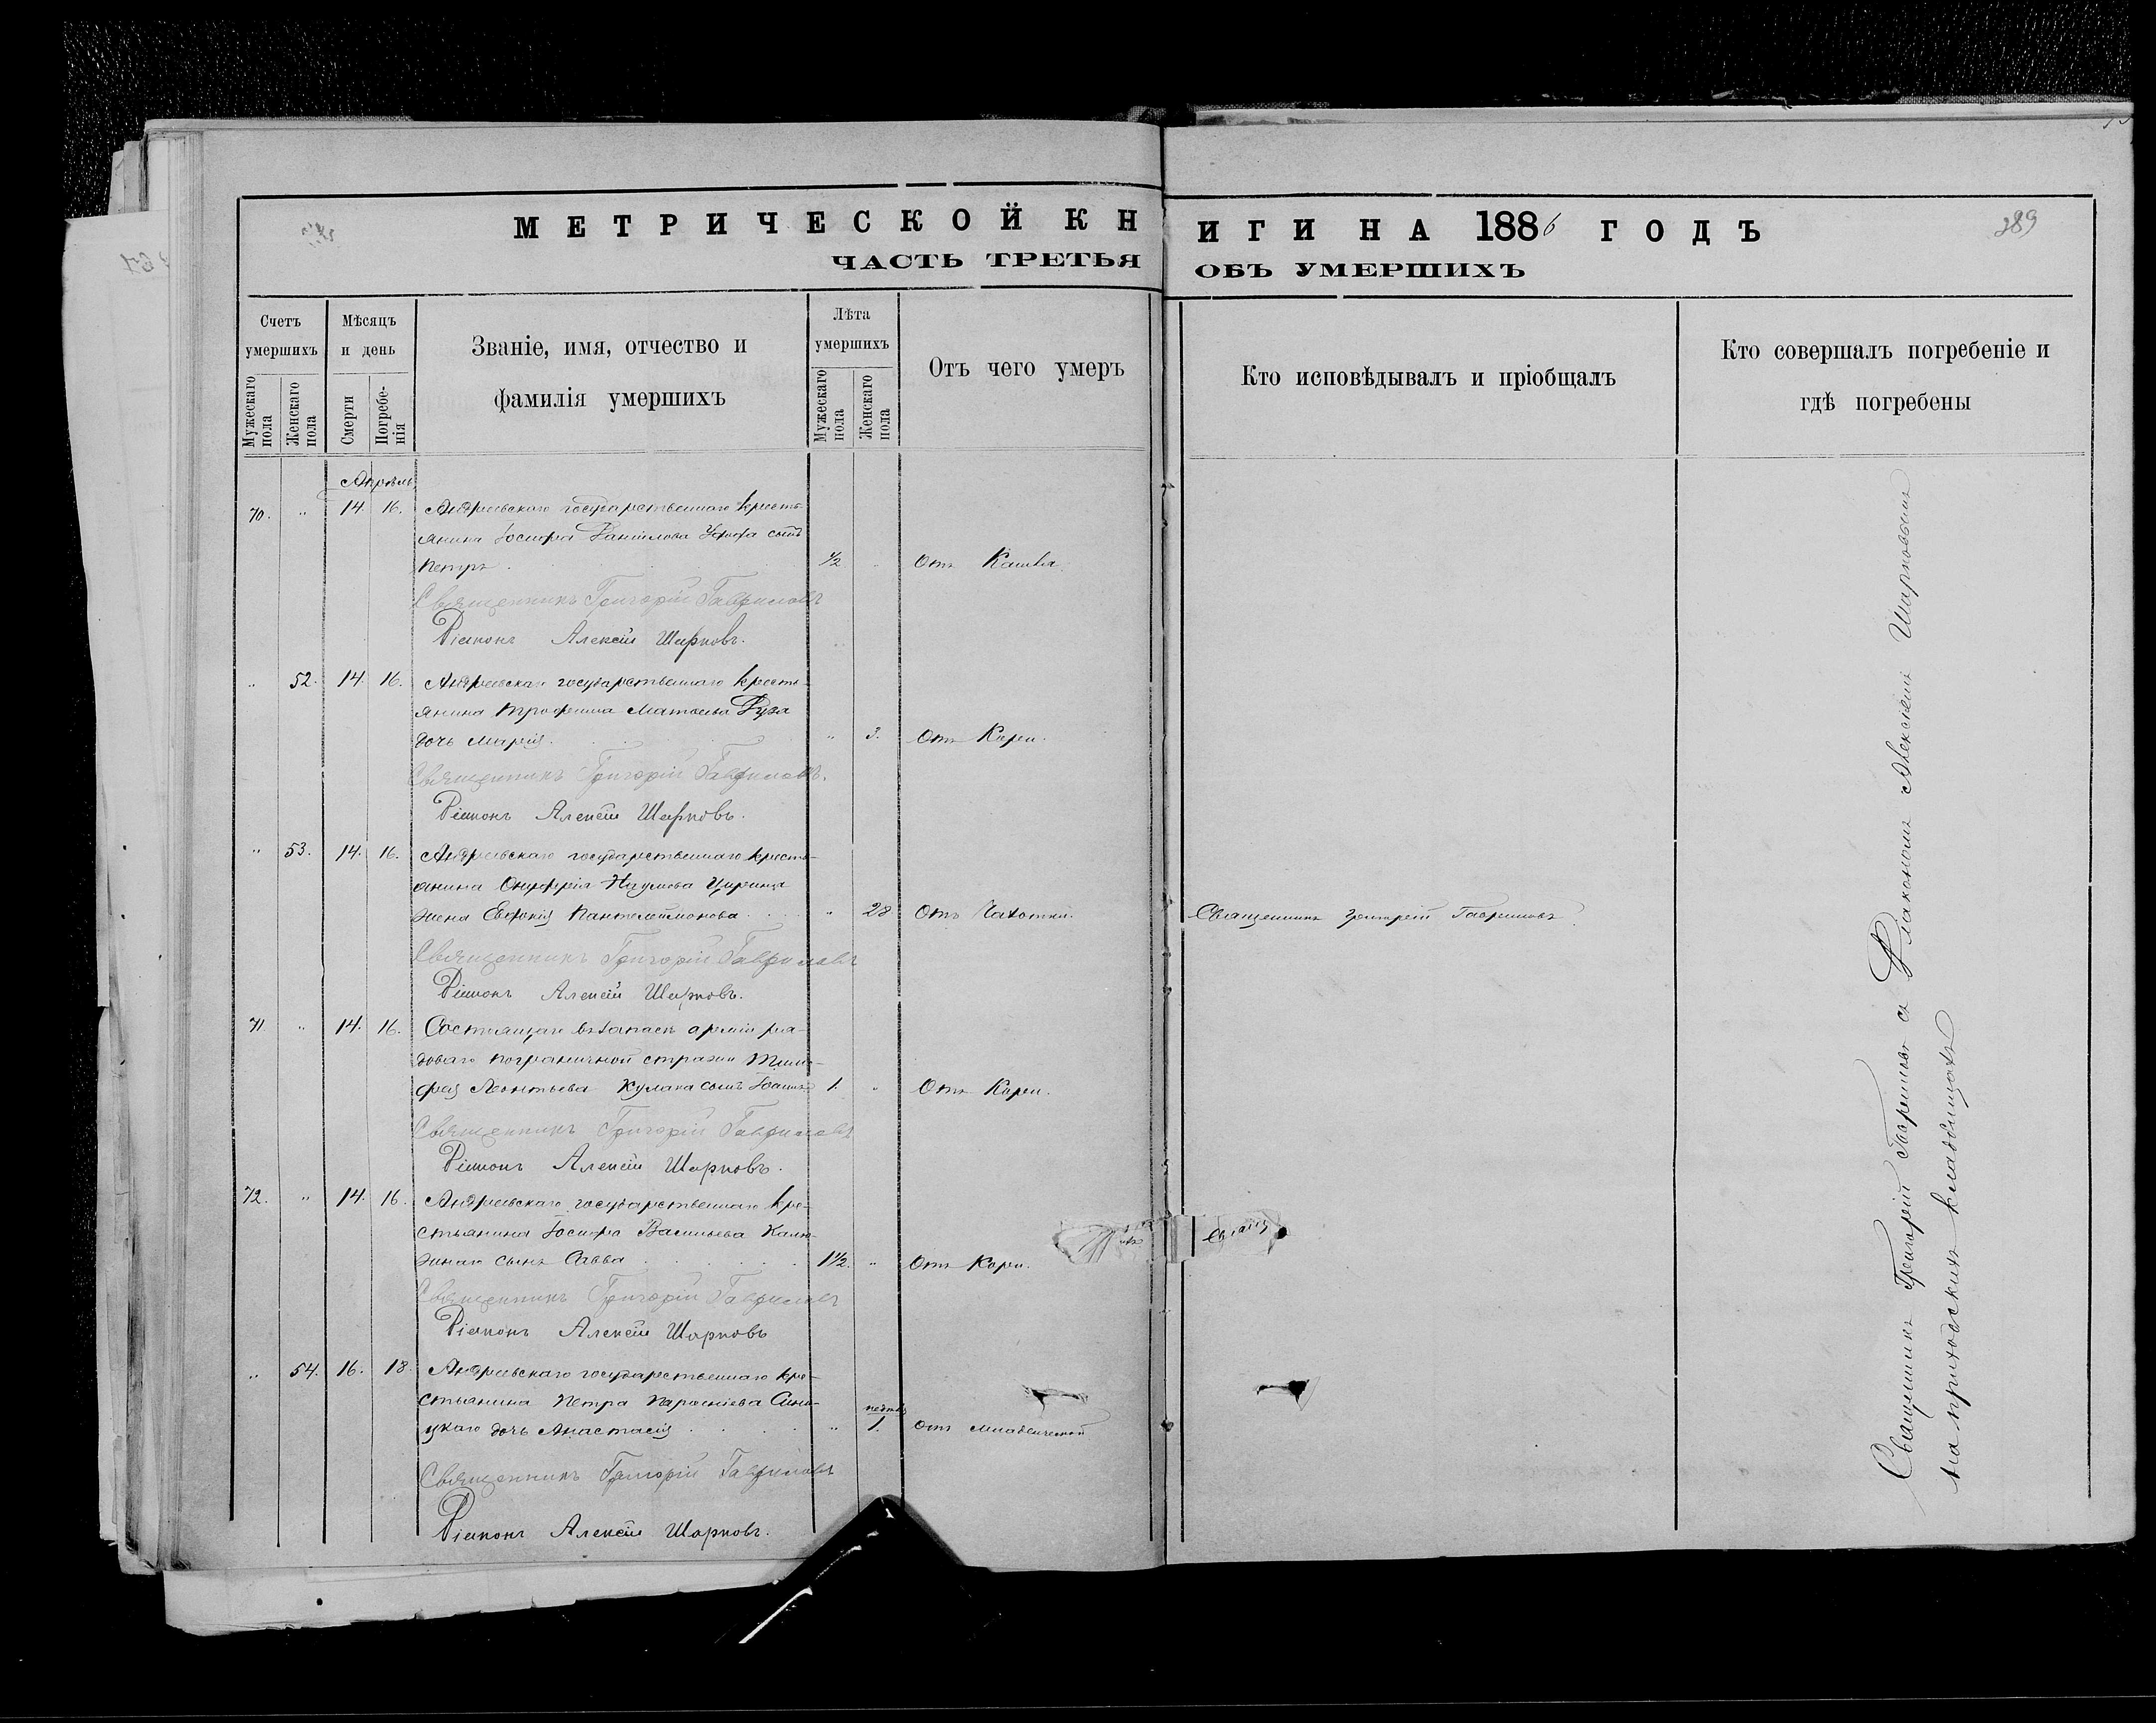 МЕТРИЧЕСКОЙ КНИГИ НА 1886 ГОДЪ
289
ЧАСТЬ ТРЕТЬЯ ОБЪ УМЕРШИХЪ
Счетъ умершихъ
Мужескаго пола
Женскаго пола
Мѣсяцъ и день
Смерти
Погребенія
Званіе, имя, отчество и фамилія умершихъ
Лѣта умершихъ
Мужескаго пола
Женскаго пола
Отъ чего умеръ
Кто исповѣдывалъ и пріобщалъ
Кто совершалъ погребеніе и гдѣ погребены
Апрѣль
70. " 14. 16. Андреевскаго государственнаго кресть-
янина Іосифа Даніилова сынъ
Петръ ½ " Отъ Кашля.
Священникъ Григорій Гавриловъ
Діаконъ Алексѣй Шарковъ.
" 52. 14. 16. Андреевскаго государственнаго кресть-
янина Трофима Матвѣева Дуза
дочь Марія. " 3. Отъ Кори.
Священникъ Григорій Гавриловъ.
Діаконъ Алексѣй Шарковъ.
" 53. 14. 16. Андреевскаго государственнаго кресть-
янина Онуфрія Наумова
жена Евфимія Пантелеймонова " 28 Отъ Чахотки. Священникъ Григорій Гавриловъ.
Священникъ Григорій Гавриловъ
Діаконъ Алексѣй Шарковъ.
71. " 14. 16. Состоящаго въ запасѣ арміи ря-
доваго пограничной стражи Тимо-
фея Леонтьева Кулака сынъ Іоаннъ 1. " Отъ Кори.
Священникъ Григорій Гавриловъ
Діаконъ Алексѣй Шарковъ.
72. " 14. 16. Андреевскаго государственнаго кре-
стьянина Іосифа Васильева Калю-
жнаго сынъ Савва 1½. " Отъ Кори.
Священникъ Григорій Гавриловъ
Діаконъ Алексѣй Шарковъ
" 54. 16. 18. Андреевскаго государственнаго кре-
стьянина Петра Сини-
цкаго дочь Анастасія " 1. Отъ младенческой
Священникъ Григорій Гавриловъ
Діаконъ Алексѣй Шарковъ.
Священникъ Григорій Гавриловъ съ Діакономъ Алексѣемъ Шарковымъ
на приходскихъ кладбищахъ